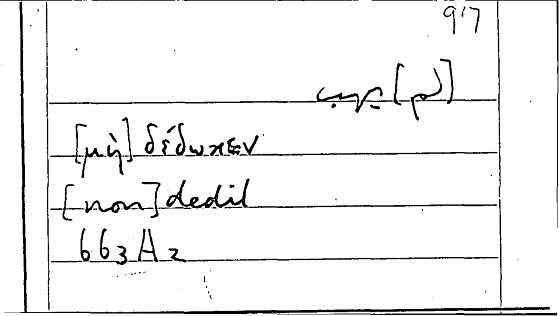 917
[لم] يهب
[μὴ] δέδωκεν
[non] dedit
663A2